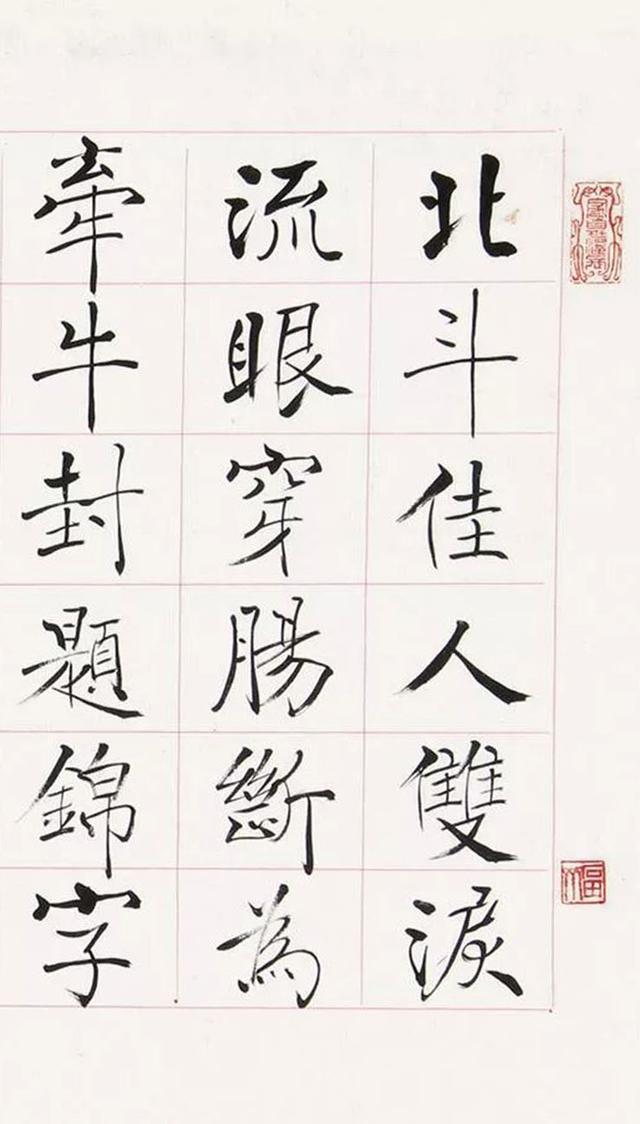 北斗佳人雙淚
流眼穿腸斷為
牽牛封題錦字